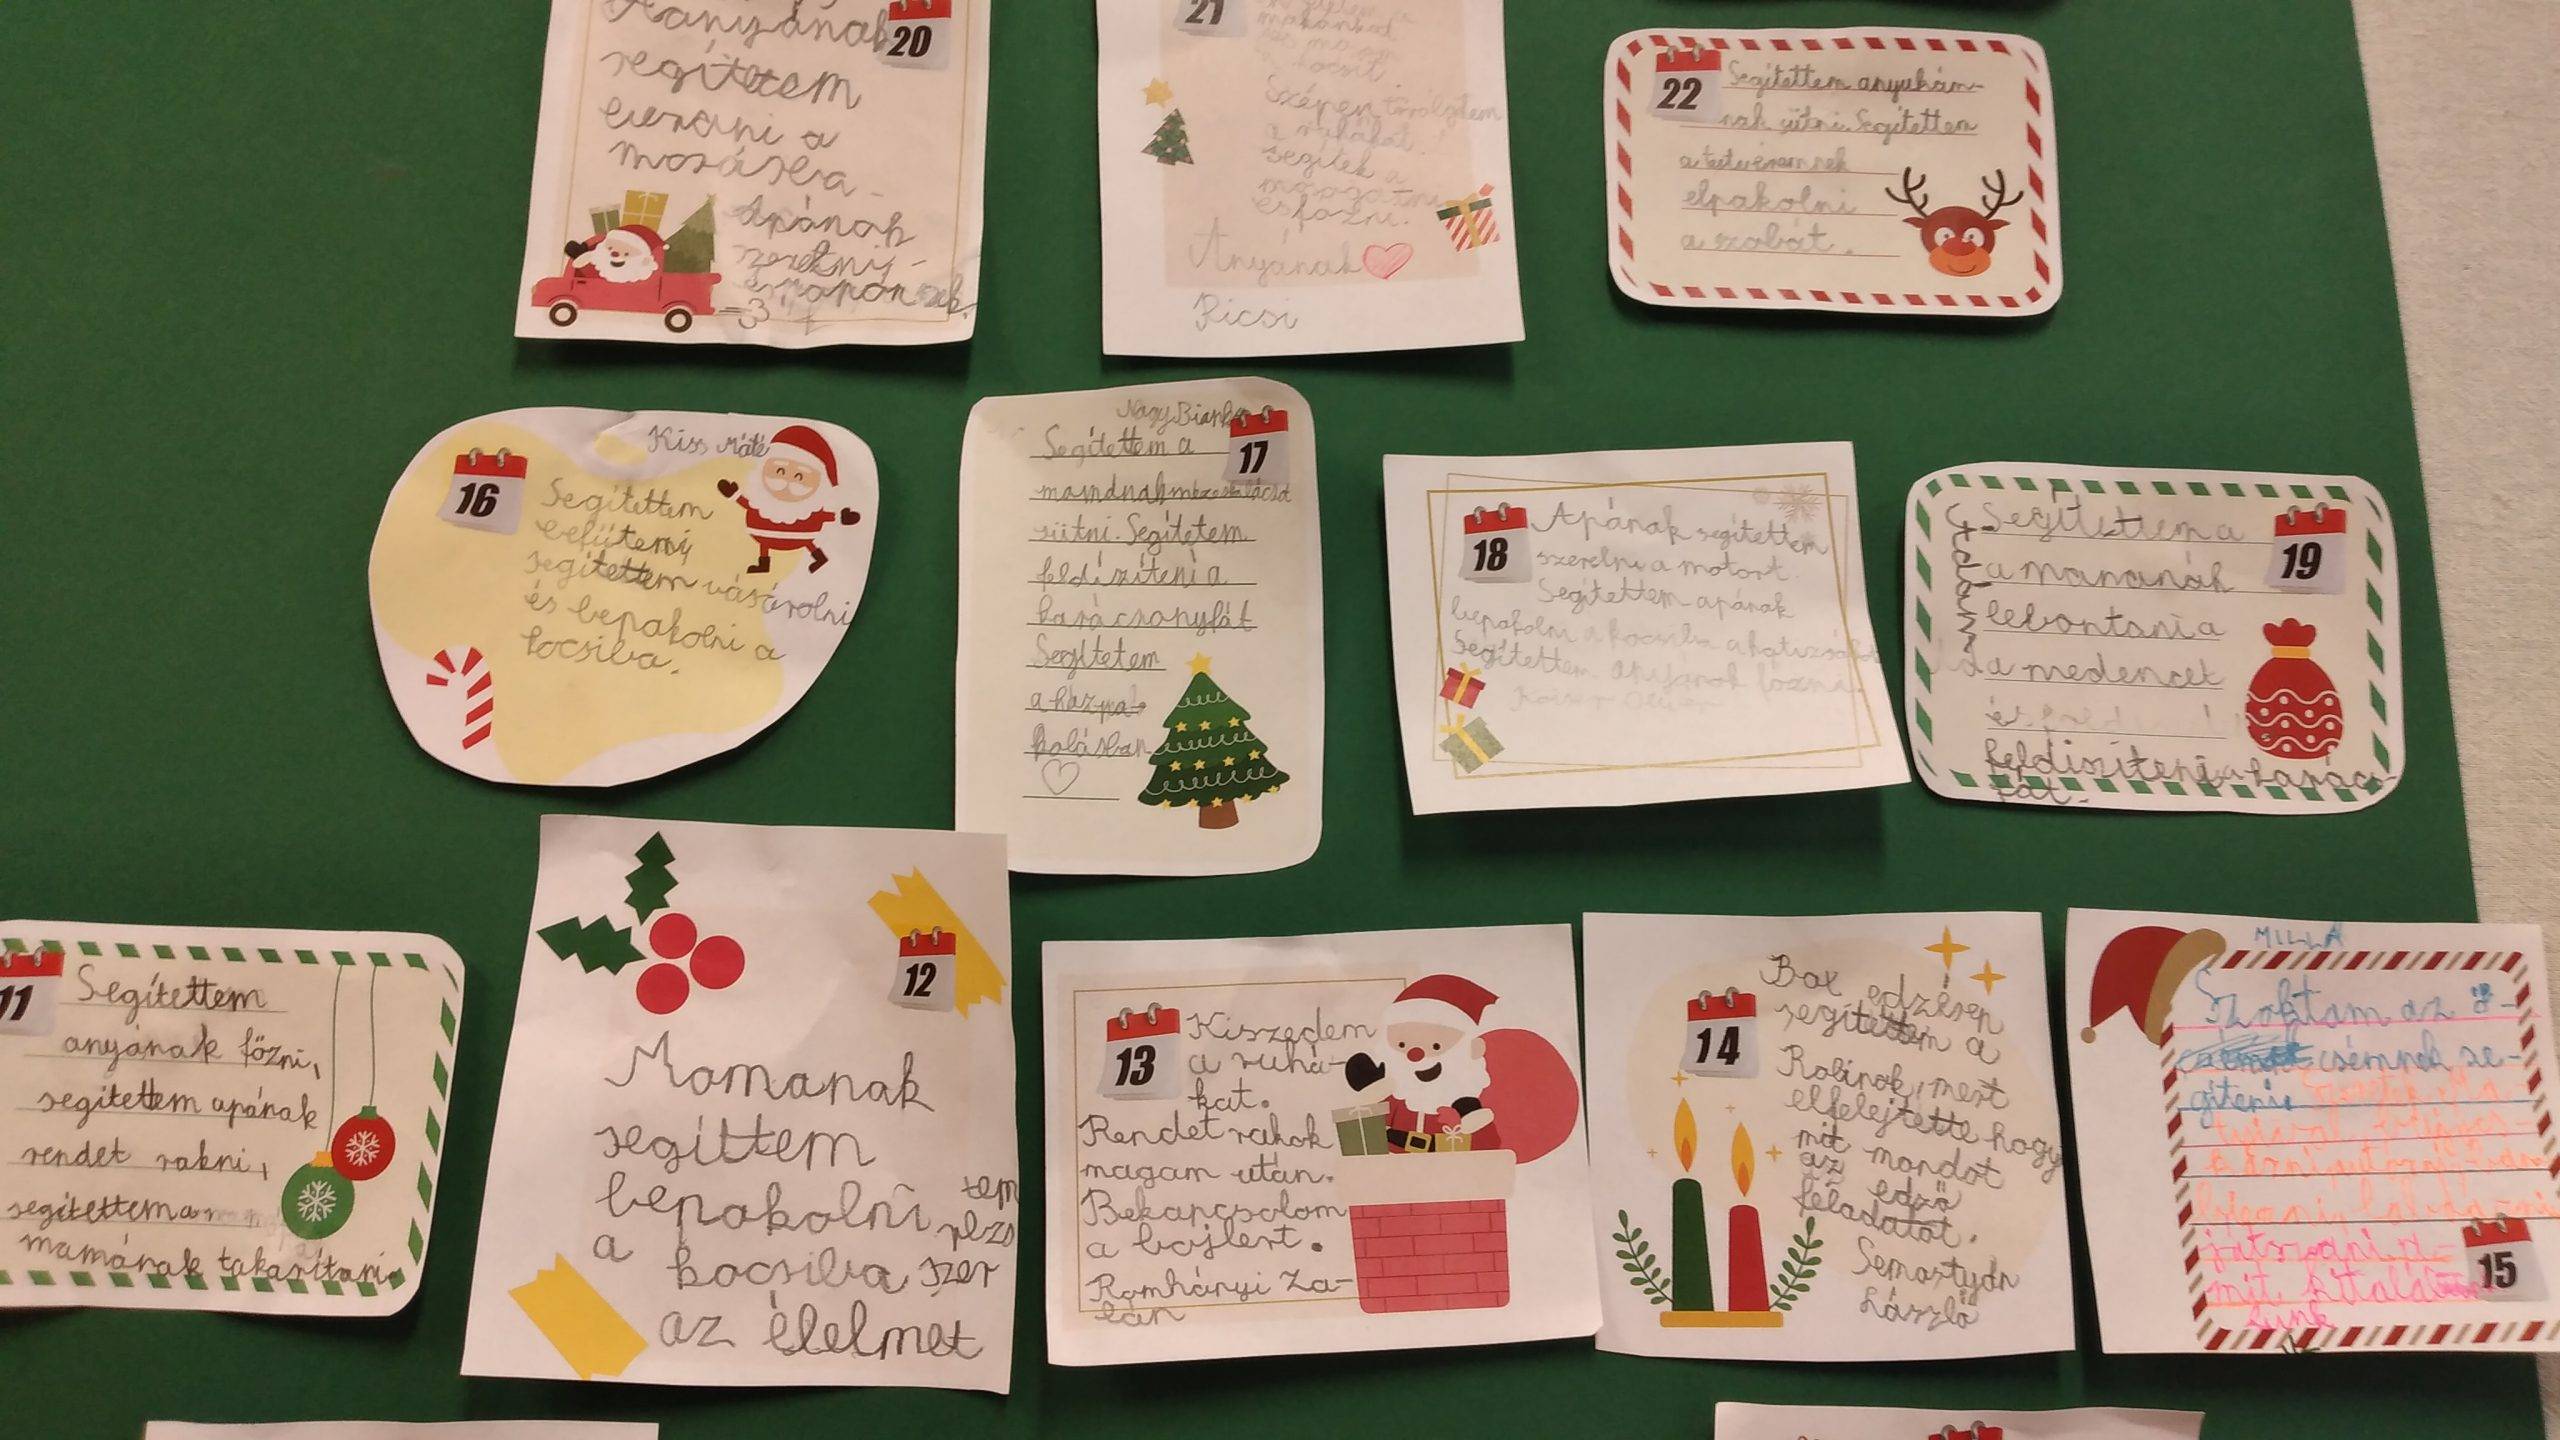 20
segítetem
a
Apának
21
Szépen
a ruhákat.
segítek a
és főzni.
Anyának
Ricsi
22
Segítettem anyukám-
nak sütni. Segítettem
a testvéremnek
elpakolni
a szobát.
16
Kiss Máté
Segítettem
befűteni,
segítettem vásárolni
és bepakolni a
kocsiba.
17
Nagy Bianka
Segítettem a
mamának mézeskalácsot
sütni. Segítetem
feldíszíteni a
karácsonyfát
Segítetem
a házpa-
kolásban
18
Apának segítettem
szerelni a motort.
Segítettem apának
bepakolni a kocsiba
Segítettem anyának főzni.
19
Segítettem a
a mamanak
lebontani a
a medencet
feldiszíteni a karács-
fát.
11
Segítettem
anyának főzni,
segítettem apának
rendet rakni,
segítettem a
mamának takarítani
12
Mamanak
segíttem
bepakolni
a kocsiba
az élelmet
13
Kiszedem
a ruhá-
kat.
Rendet rakok
magam után.
Bekapcsolom
a bojlert.
Romhányi Za-
lán
14
Box edzésen
segítettem a
Robinak, mert
elfelejtette hogy
mit mondot
az edző
féladatot.
László
15
MILLA
Szoktam az ö-
csémnek se-
gíteni.
mit kitalál
tunk